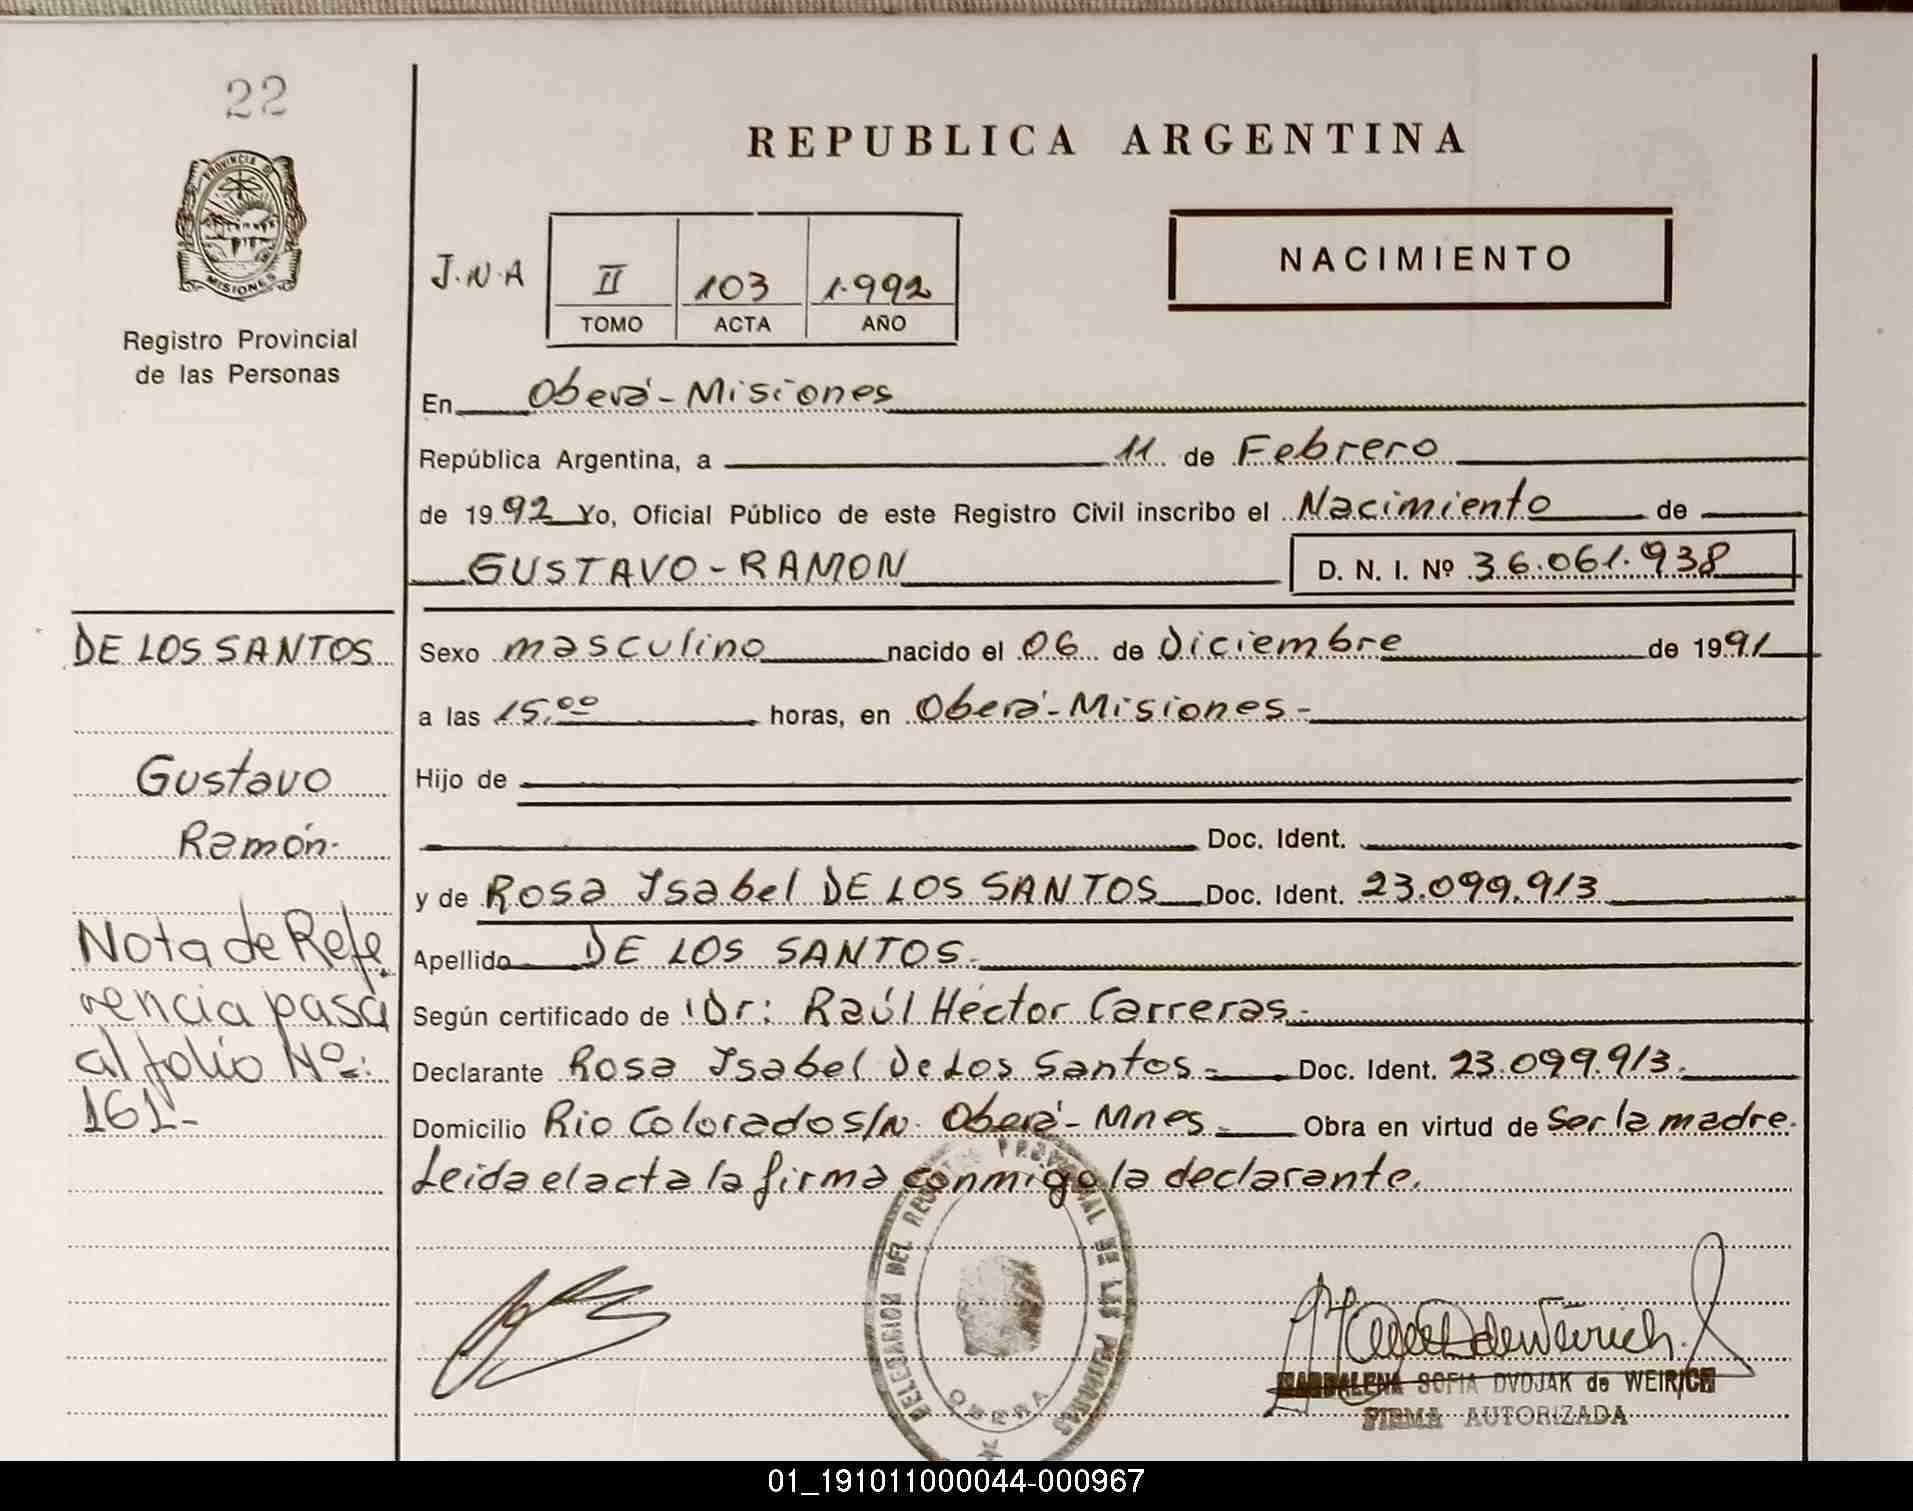 22
PROVINCIA DE
MISIONES
Registro Provincial
de las Personas
REPUBLICA ARGENTINA
NACIMIENTO
J.N.A
II 103 1.992
TOMO ACTA AÑO
En Oberá - Misiones
República Argentina, a 11 de Febrero
de 1992 Yo, Oficial Público de este Registro Civil inscribo el Nacimiento de
GUSTAVO - RAMON D. N. I. Nº 36.061.938
DE LOS SANTOS
Gustavo
Ramón.
Nota de Refe
rencia pasa
al folio Nº:
161-
Sexo masculino nacido el 06 de Diciembre de 1991
a las 15,00 horas, en Oberá - Misiones -
Hijo de
Doc. Ident.
y de Rosa Isabel DE LOS SANTOS Doc. Ident. 23.099.913
Apellido DE LOS SANTOS.
Según certificado de Dr: Raúl Héctor Carreras.-
Declarante Rosa Isabel De Los Santos.- Doc. Ident. 23.099.913.
Domicilio Rio Colorado s/N. Oberá - Mnes. Obra en virtud de Ser la madre.
Leida el acta la firma conmigo la declarante.
DELEGACION DEL REGISTRO PROVINCIAL DE LAS PERSONAS
OBERA
MAGDALENA SOFIA DVOJAK de WEIRICH
FIRMA AUTORIZADA
01_191011000044-000967